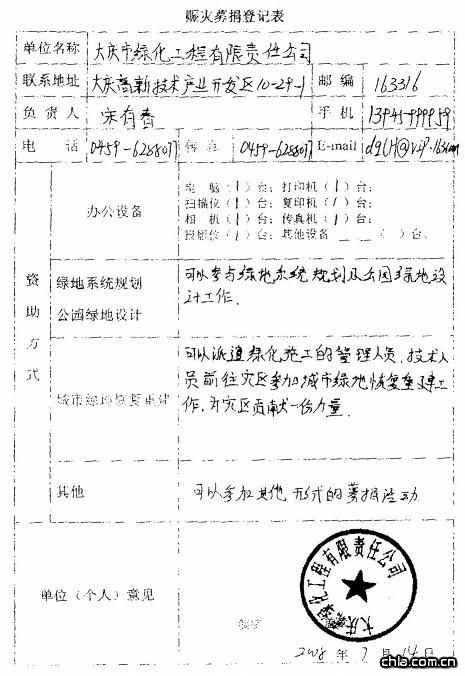 赈灾募捐登记表
单位名称 大庆市绿化工程有限责任公司
联系地址 大庆高新技术产业开发区10-29-1 邮编 163316
负责人 宋有春 手机 13945999959
电话 0459-6288077 传真 0459-6288077 E-mail dqlh@vip.163.com
资助方式
办公设备
电脑（1）台；打印机（1）台；
扫描仪（1）台；复印机（1）台；
相机（1）台；传真机（1）台；
投影仪（1）台；其他设备 （ ）台；
绿地系统规划
公园绿地设计
可以参与绿地系统规划及公园绿地设
计工作.
城市绿地恢复重建
可以派遣绿化施工的管理人员，技术人
员前往灾区参加城市绿地恢复重建工
作，为灾区贡献一份力量.
其他
可以参加其他形式的募捐活动
单位（个人）意见
大庆市绿化工程有限责任公司
签字
2008年7月14日
chla.com.cn